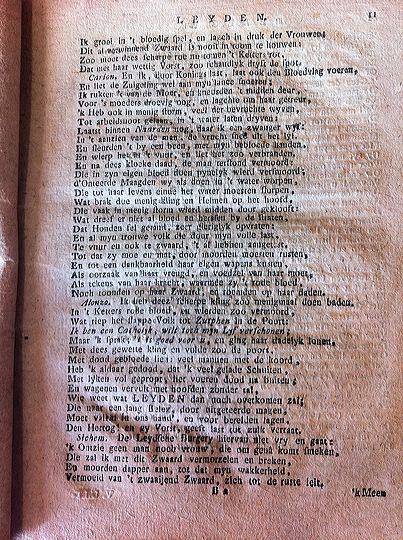 LEYDEN. 11
Ik grool in 't bloedig spel, en lagch in druk der Vrouwen;
Dit al verwinnend Zwaard is nooit in toom te houwen;
Zoo moet dees scherpe roê nu tomen 't Ketters rot,
Dat met haar wettig Vorst, zoo schandlyk dryft de spot.
Carion. En ik, door Konings last, laat ook den Bloedving voeren,
En liet de Zuigeling wel aan myn lance snoeren;
Ik rukte 't van de Moer, en kneusden 't midden deur,
Voor 's moeders droevig oog, en lagchte om haar getreur,
'k Heb ook in menig storm, veel der bevruchte wyven,
Tot arbeidsnoot gebragt, in 't water laten dryven:
Laatst binnen Naarden nog, daar ik een zwanger wyf;
In 't aanzien van de man, de vrucht sneed uit het lyf,
En sleurden 't by een been, met myn bebloede handen,
En wierp het in 't vuur, en liet het zoo verbranden,
En na dees kloeke daad, de man terstond vermoord,
Die in zyn eigen bloed door pynelyk wierd versmoord;
d'Onteerde Maagden wy als doen in 't water worpen,
Die tot haar levens einde het water moesten slorpen,
Wat brak doe menig kling en Helmen op het hoofd,
Die vaak in menig storm wierd midden door geklooft:
Wat dreef er niet al bloed en hersens by de straten,
Dat Honden fel geraind, zeer gierglyk opvraten:
En al myn trouwe volk die door myn volle last,
Te vuur en ook te zwaard, 't al hebben aangetast,
Tot dat zy moe en mat, door moorden moesten rusten,
En tot een dankbaarheid haar eigen wapens kusten,
Als oorzaak van haar vreugd, en voedsel van haar moet,
Als tekens van haar kracht, waarmede zy 't rode bloed,
Noch toonden op haar Zwaard, en toonden op haar daden.
Alonzo. Ik heb deez' scherpe kling zoo menigmaal doen baden,
In 't Ketters rode bloed, en wierden zoo vermoord,
Wat riep het slappe Volk tot Zutphen in de Poort:
Ik ben een Catholyk, wilt toch myn Lyf verschonen;
Maar 'k sprak, 't is goed voor u, en ging haar dadelyk lonen,
Met dees gewette kling en vulde zoo de poort,
Met dood gebloede lien; veel mannen met de koord,
Heb 'k aldaar gedood, dat 'k veel gelade Schuiten,
Met lyken vol gepropt, liet voeren dood na buiten;
En wagenen vervult met hoofden zonder tal,
Wie weet wat LEYDEN dan noch overkomen zal;
Die maar een lang Beleg, door uitgeteerde magen,
Moet vallen in ons hand, en voor bereiden lagen,
Den Hertog en zyn Vorst, geeft last tot zulk verraat.
Sichem. De Leydsche Burgery hiervan niet vry en gaat;
'k Ontzie geen man noch vrouw, die om genâ komt smeken,
Die zal ik met dit Zwaard vermorzelen en breken,
En moorden dapper aan, tot dat myn wakkerheid,
Vermoeid van 't zwaaijend Zwaard, zich tot de ruste leit.
B 2 'k Meen